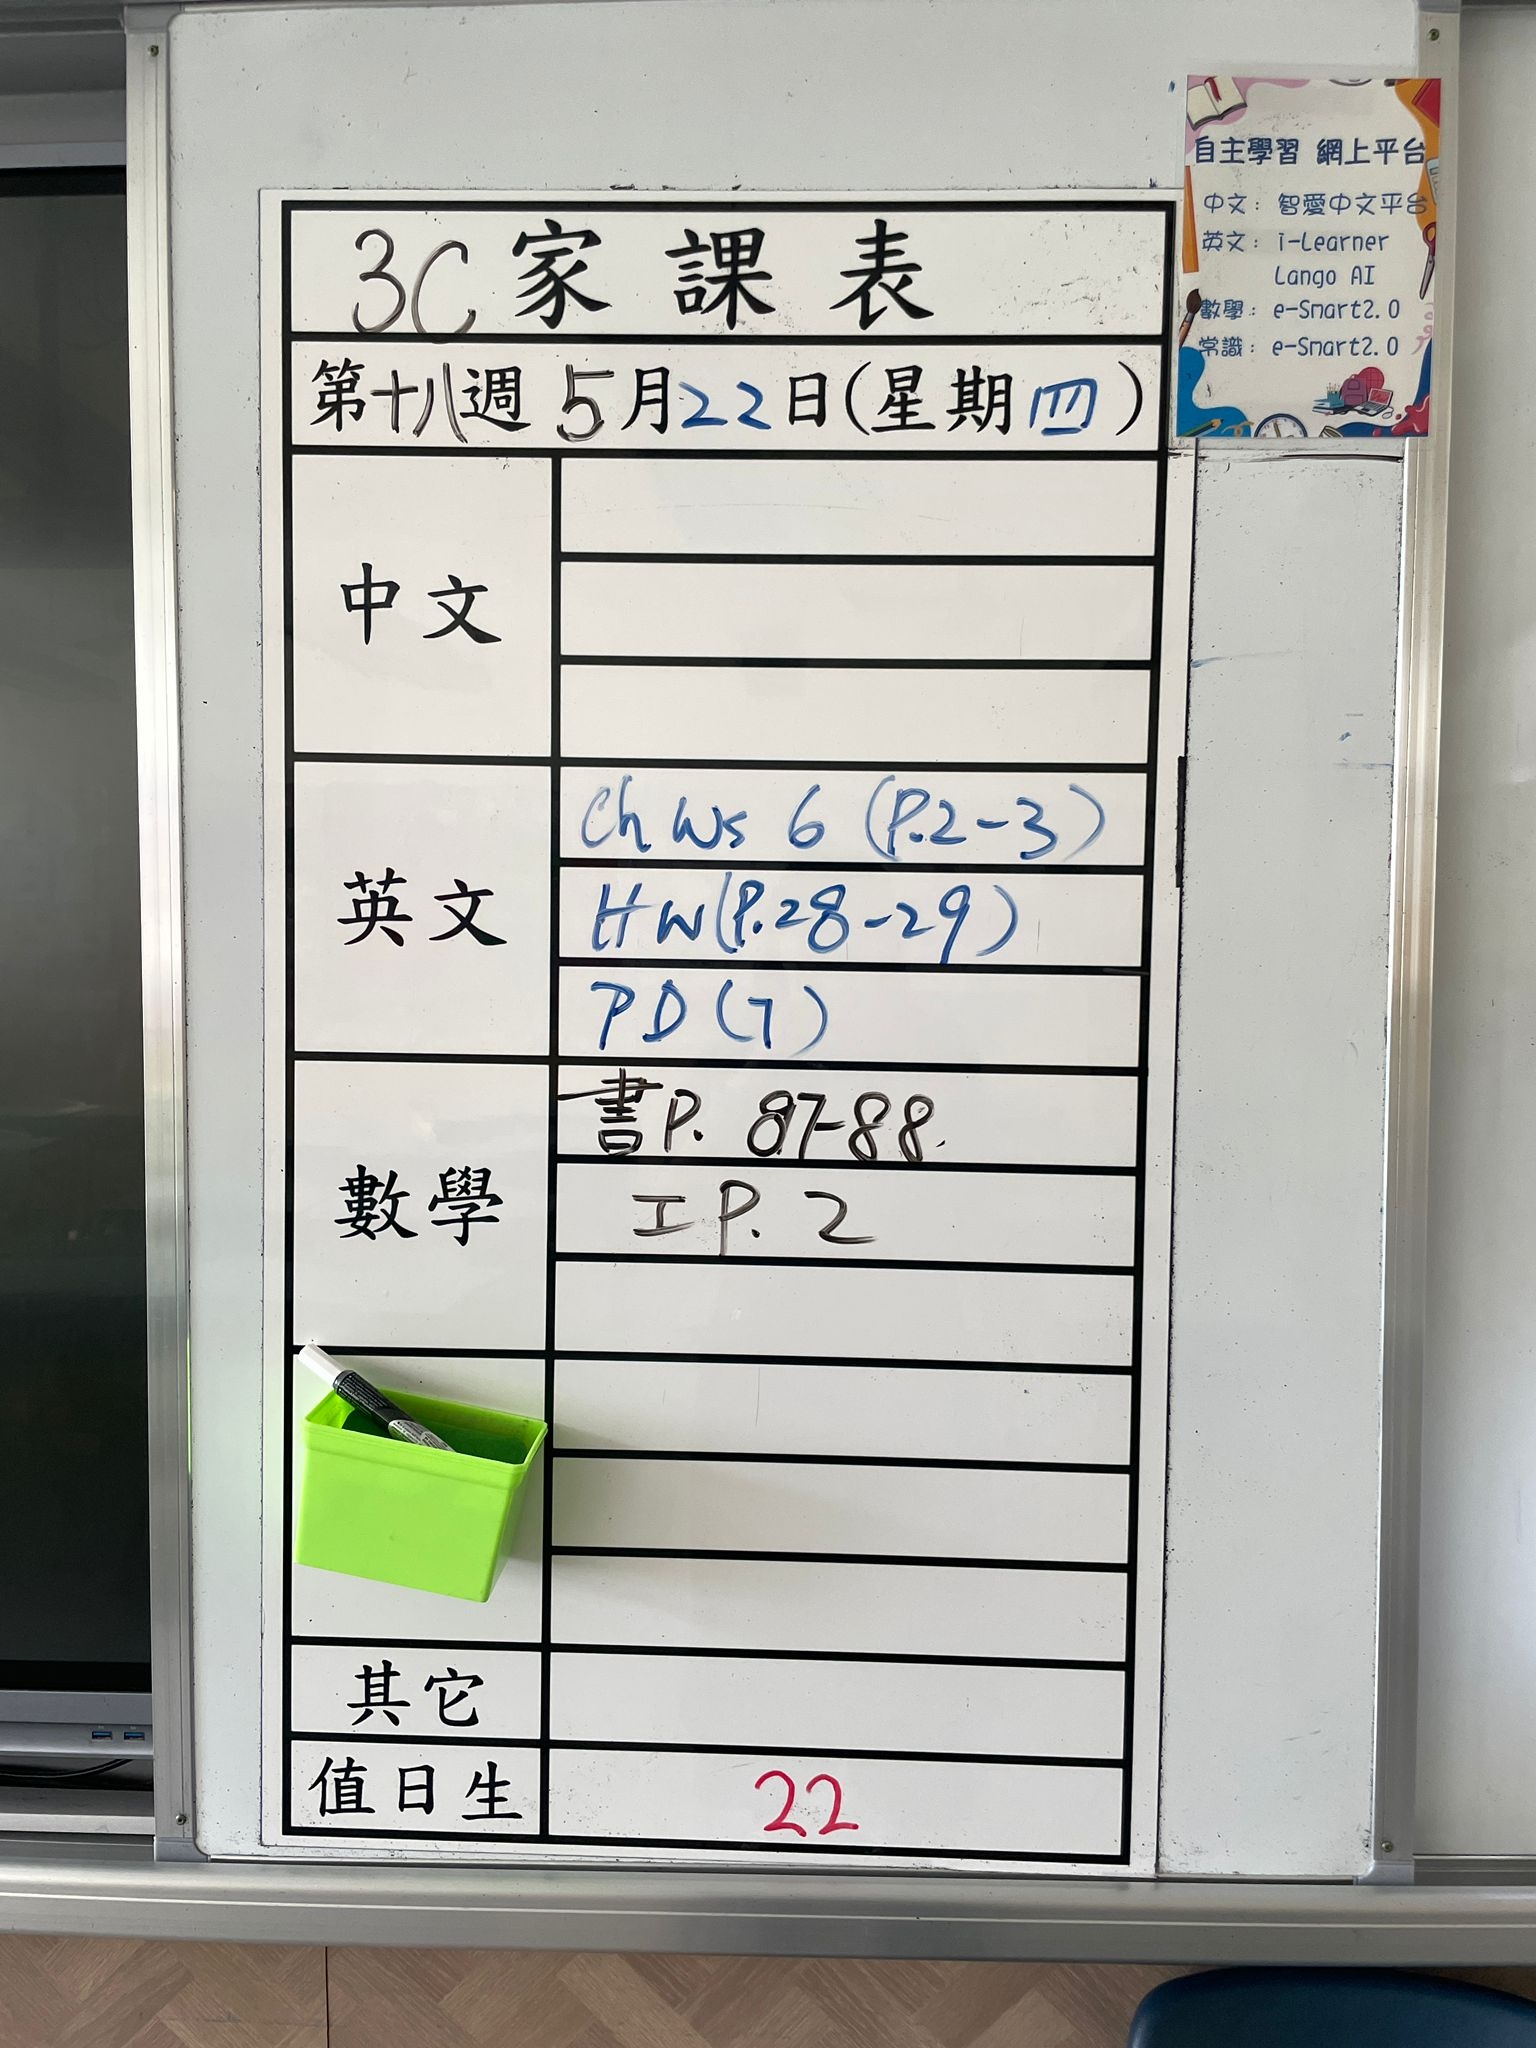 3C 家課表
第十八週 5月22日(星期四)
中文
英文
Ch Ws 6 (P.2-3)
HW(P.28-29)
PD(7)
數學
書P. 87-88.
工P. 2
其它
值日生
22
自主學習 網上平台
中文: 智愛中文平台
英文: i-Learner
Lango AI
數學: e-Smart2.0
常識: e-Smart2.0